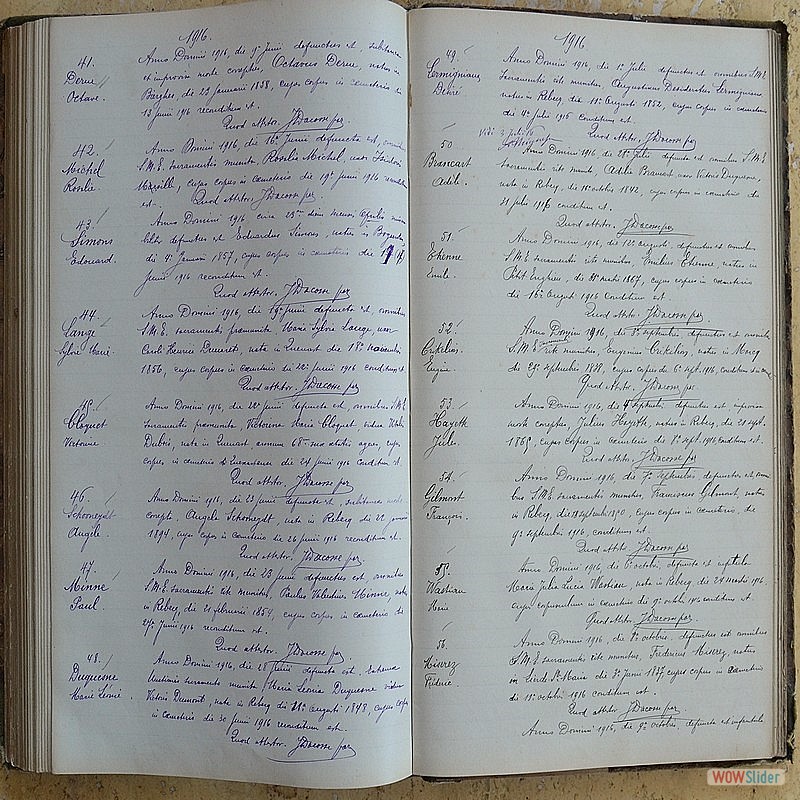 1916.
41.
Derue
Octave.
Anno Domini 1916, die 9ª Junii defunctus est, subitanea
et improvisa morte correptus, Octavus Derue, natus in
Barghes, die 23 januarii 1838, cujus corpus in cœmeterio die
13 junii 1916 reconditum est.
Quod attestor. J Dacosse par.
42.
Michel
Rosalie.
Anno Domini 1916, die 16ª Junii defuncta est, omnibus
S.M.E. sacramentis munita, Rosalia Michel, uxor
cujus corpus in cœmeterio die 19ª junii 1916 reconditum
est.
Quod attestor. J Dacosse par.
43.
Simons
Edouard.
Anno Domini 1916 circa 23am diem mensis Aprilis
defunctus est Eduardus Simons, natus in
die 4ª januarii 1857, cujus corpus in cœmeterio die 17
junii 1916 reconditum est.
Quod attestor. J Dacosse par
44.
Lange
Sylvie Marie.
Anno Domini 1916, die 19ª junii defuncta est, omnibus
S.M.E. sacramentis præmunita Maria Sylvia Lange, uxor
Caroli nata in Quenast die 18ª novembris
1856, cujus corpus in cœmeterio die 22ª junii 1916 conditum est
Quod attestor. J Dacosse par
45.
Cloquet
Victorine
Anno Domini 1916, die 22ª junii defuncta est, omnibus S.M.E.
sacramentis præmunita Victorina Maria Cloquet, vidua
Dubois, nata in Quenast annum 68um suæ ætatis agens, cujus
corpus in cœmeterio die 24 junii 1916 conditum est.
Quod attestor. J Dacosse par
46.
Schoonejdt
Angèle.
Anno Domini 1916, die 23 junii defuncta est, subitanea morte
correpta, Angela Schoonejdt, nata in Rebecq die 22
1894, cujus corpus in cœmeterio die 26 junii 1916 reconditum est.
Quod attestor. J Dacosse par
47.
Minne
Paul.
Anno Domini 1916, die 23 junii defunctus est, omnibus
S.M.E. sacramentis rite munitus, Paulus Valentinus Minne, natus
in Rebecq, die 21 februarii 1854, cujus corpus in cœmeterio die
27ª junii 1916 reconditum est.
Quod attestor. J Dacosse par
48.
Duquesne
Marie Léonie.
Anno Domini 1916, die 28 junii defuncta est, Extremæ
Unctionis sacramento munita Maria Leonia Duquesne vidua
Victoris Dumont, nata in Rebecq die 21ª augusti 1848, cujus corpus
in cœmeterio die 30 junii 1916 reconditum est.
Quod attestor. J Dacosse par
1916
49.
Lermigniaux
Désiré.
Anno Domini 1916, die 1ª Julii defunctus est omnibus S.M.E.
Sacramentis rite munitus, Augustinus Desideratus Lermigniaux
natus in Rebecq die 11ª Augusti 1852, cujus corpus in cœmeterio
die 4ª julii 1916 conditum est.
Quod attestor. J Dacosse par
50
Brancart
Adèle.
Anno Domini 1916, die 29ª Julii defuncta est omnibus S.M.E
sacramentis rite munita, Adelia Brancart uxor Victoris Duquesne,
nata in Rebecq, die 15ª octobris 1842, cujus corpus in cœmeterio die
31 julii 1916 conditum est.
Quod attestor. J Dacosse par
51.
Etienne
Emile.
Anno Domini 1916, die 12ª augusti, defunctus est omnibus
S.M.E sacramentis rite munitus, Emilius Etienne, natus in
Petit Enghien, die 31ª martii 1867, cujus corpus in cœmeterio
die 15ª augusti 1916 conditum est.
Quod attestor. J Dacosse par
52.
Eugène.
Anno Domini 1916, die 3ª septembris, defunctus est omnibus
S.M.E. sacramentis rite munitus, Eugenius natus in
die 29ª septembris 1872, cujus corpus die 6ª sept. 1916, conditum est
Quod attestor. J Dacosse par.
53.
Hayeth
Jules.
Anno Domini 1916, die 4 septembris defunctus est, improvisa
morte correptus, Julius Hayeth, natus in Rebecq, die 20 sept.
1865, cujus corpus in cœmeterio die 7ª sept. 1916, conditum est.
Quod attestor. J Dacosse par
54.
Gilmont
François.
Anno Domini 1916, die 7ª septembris, defunctus est omni
bus S.M.E sacramentis munitus, Franciscus Gilmont, natus
in Rebecq, die 18 septembris 1870, cujus corpus in cœmeterio, die
9ª septembris 1916, conditum est.
Quod attestor J Dacosse par
55.
Wastiau
Marie
Anno Domini 1916, die 6ª octobris, defuncta est infantula
Maria Julia Lucia Wastiau, nata in Rebecq die 24 martii 1916
cujus corpusculum in cœmeterio die 9ª octobris 1916 conditum est.
Quod attestor J Dacosse par
56.
Miserez
Frédéric.
Anno Domini 1916, die 8ª octobris, defunctus est omnibus
S.M.E sacramentis rite munitus, Fredericus Miserez, natus
in die 3ª junii 1837, cujus corpus in cœmeterio
die 11ª octobris 1916 conditum est.
Quod attestor J Dacosse par
Anno Domini 1916, die 9ª octobris, defuncta est infantula
WOWSlider